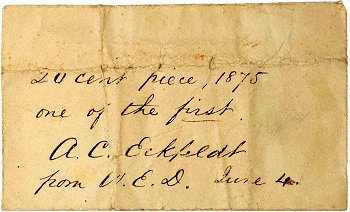 20 cent piece, 1875
one of the first.
A. C. Eckfeldt
from W. E. D. June 4.